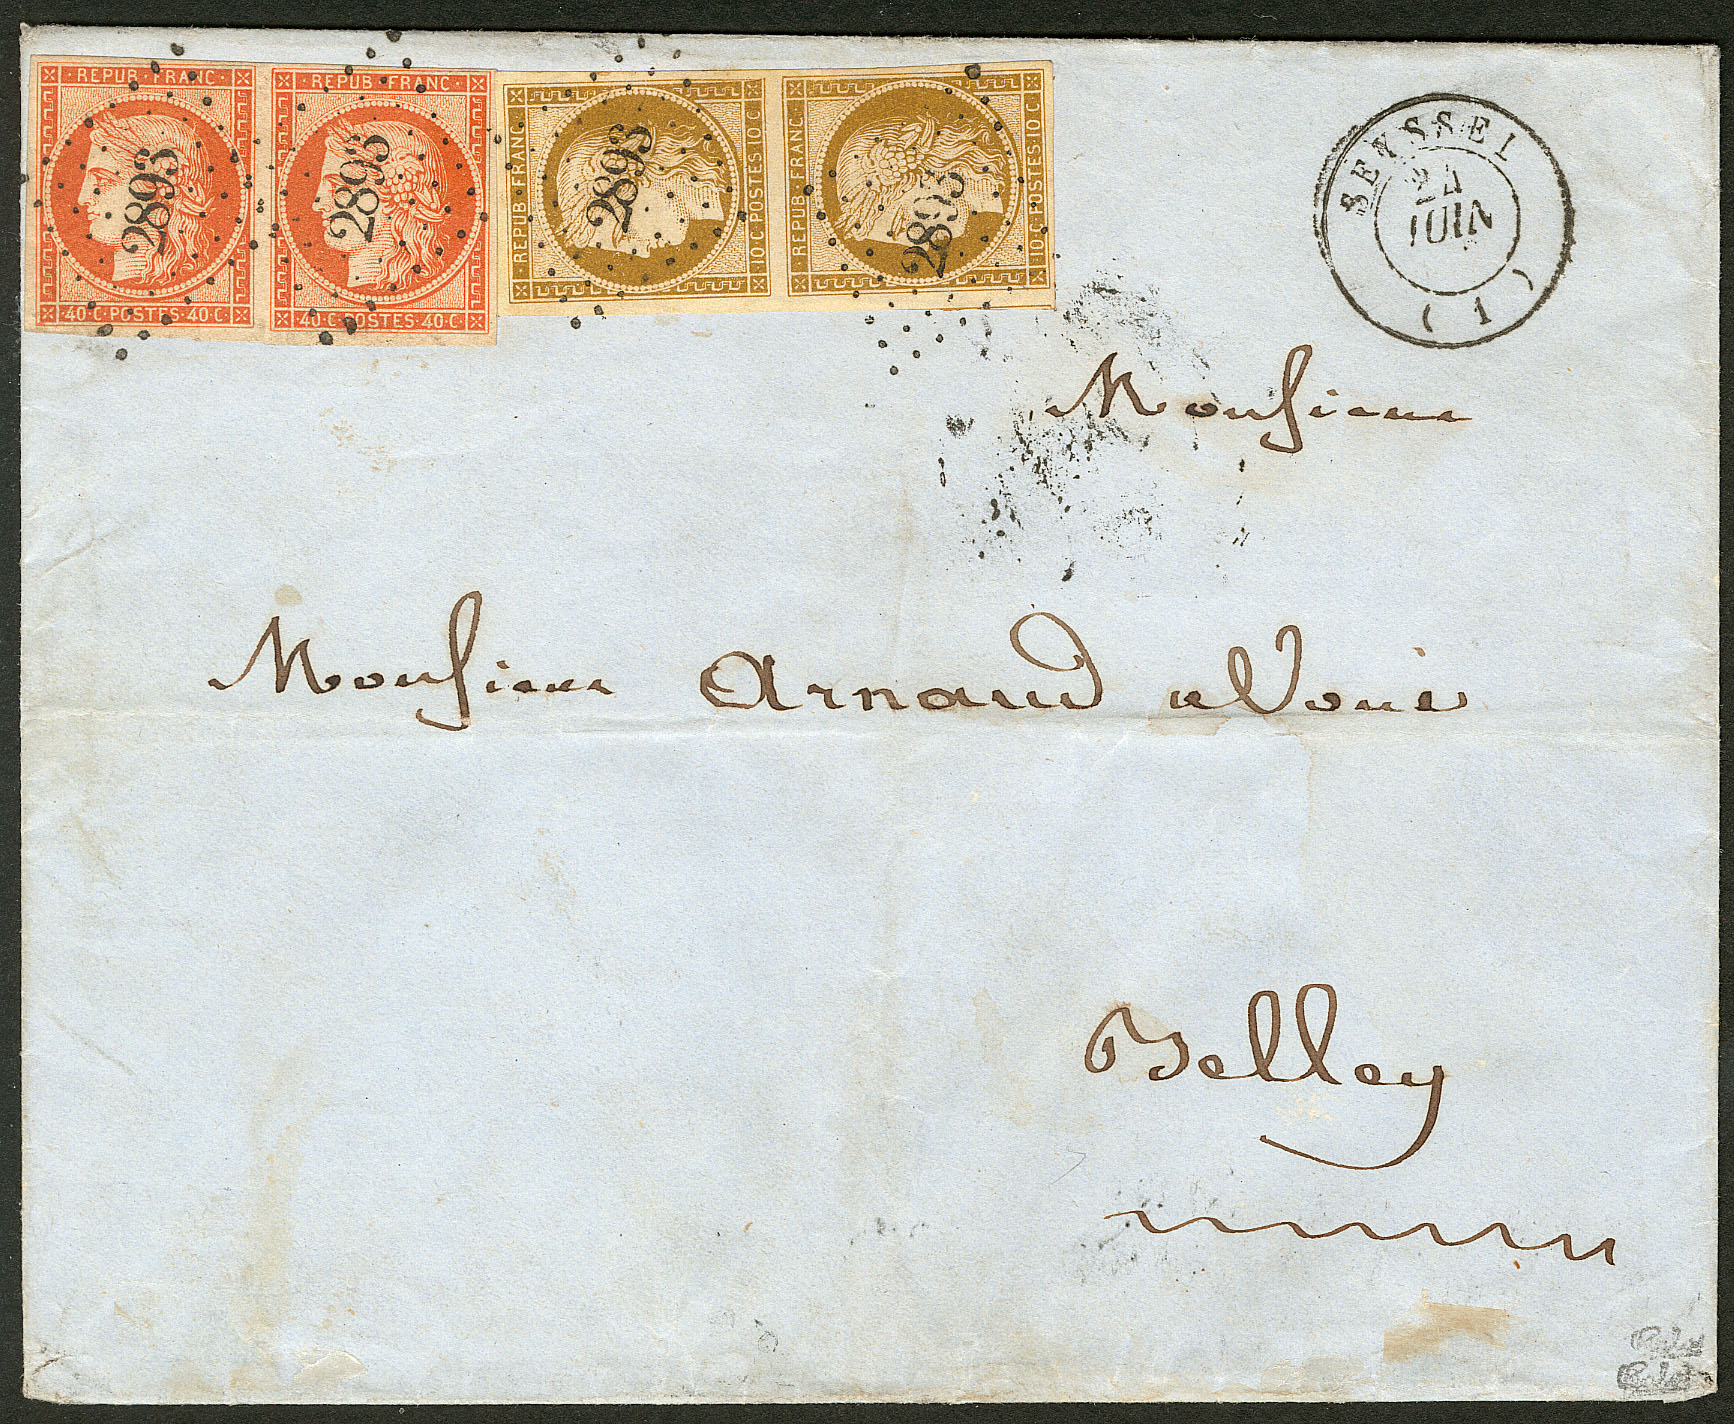 REPUB·FRANC·
40·C·POSTES·40·C·
2893
REPUB·FRANC·
40·C·POSTES·40·C·
2893
REPUB·FRANC·
10·C·POSTES·10·C
2893
REPUB·FRANC·
10·C·POSTES·10·C
2893
SEYSSEL
24
JUIN
(1)
Monsieur
Monsieur Arnaud avoué
Belley